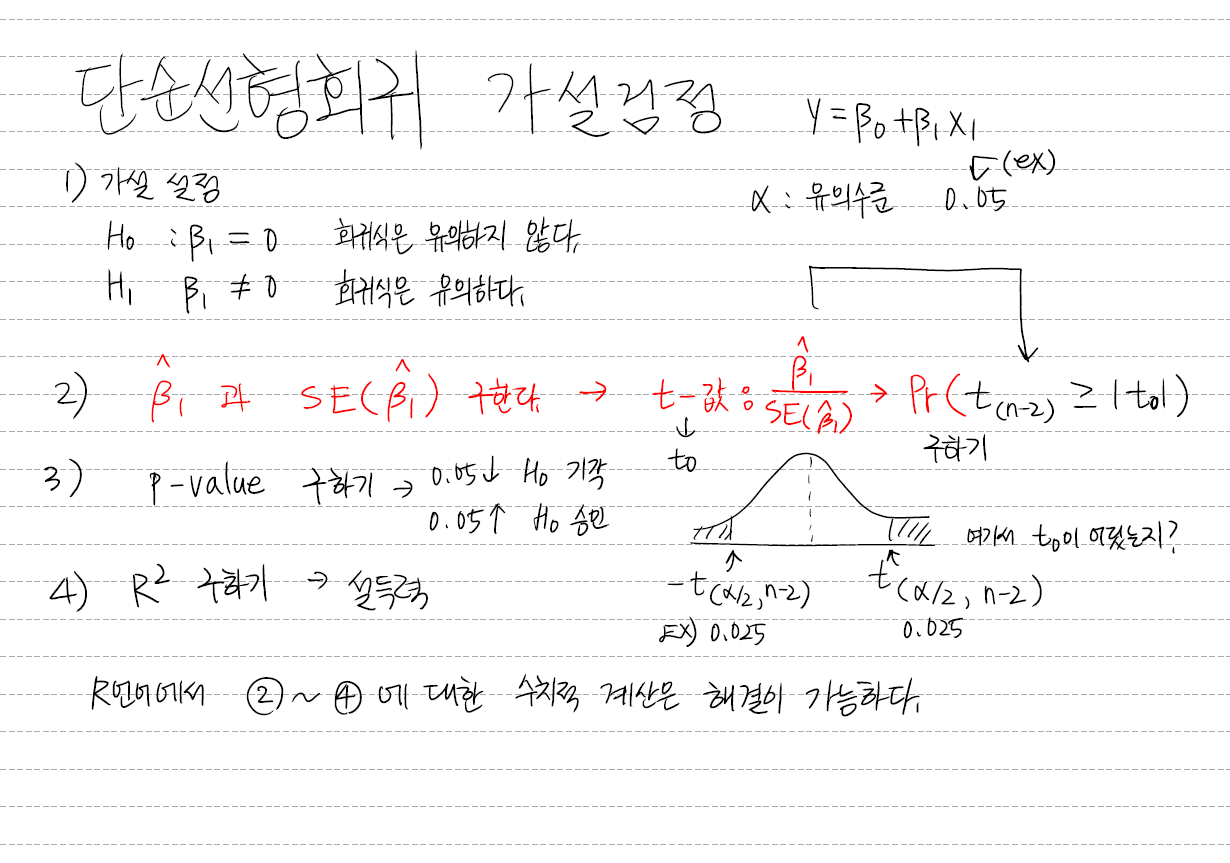 단순선형회귀 가설검정
Y = β₀ + β₁ X₁
1) 가설 설정
α : 유의수준 0.05 (ex)
H₀ : β₁ = 0 회귀식은 유의하지 않다.
H₁ β₁ ≠ 0 회귀식은 유의하다.
2) β̂₁ 과 SE(β̂₁) 구한다. → t-값 : β̂₁ / SE(β̂₁) → Pr( t(n-2) ≥ |t₀| )
↓ t₀
구하기
3) p-value 구하기 → 0.05↓ H₀ 기각
0.05↑ H₀ 승인
여기서 t₀이 어딨는지?
4) R² 구하기 → 설득력
-t(α/2, n-2) t(α/2, n-2)
EX) 0.025 0.025
R언어에서 ② ~ ④ 에 대한 수치적 계산은 해결이 가능하다.